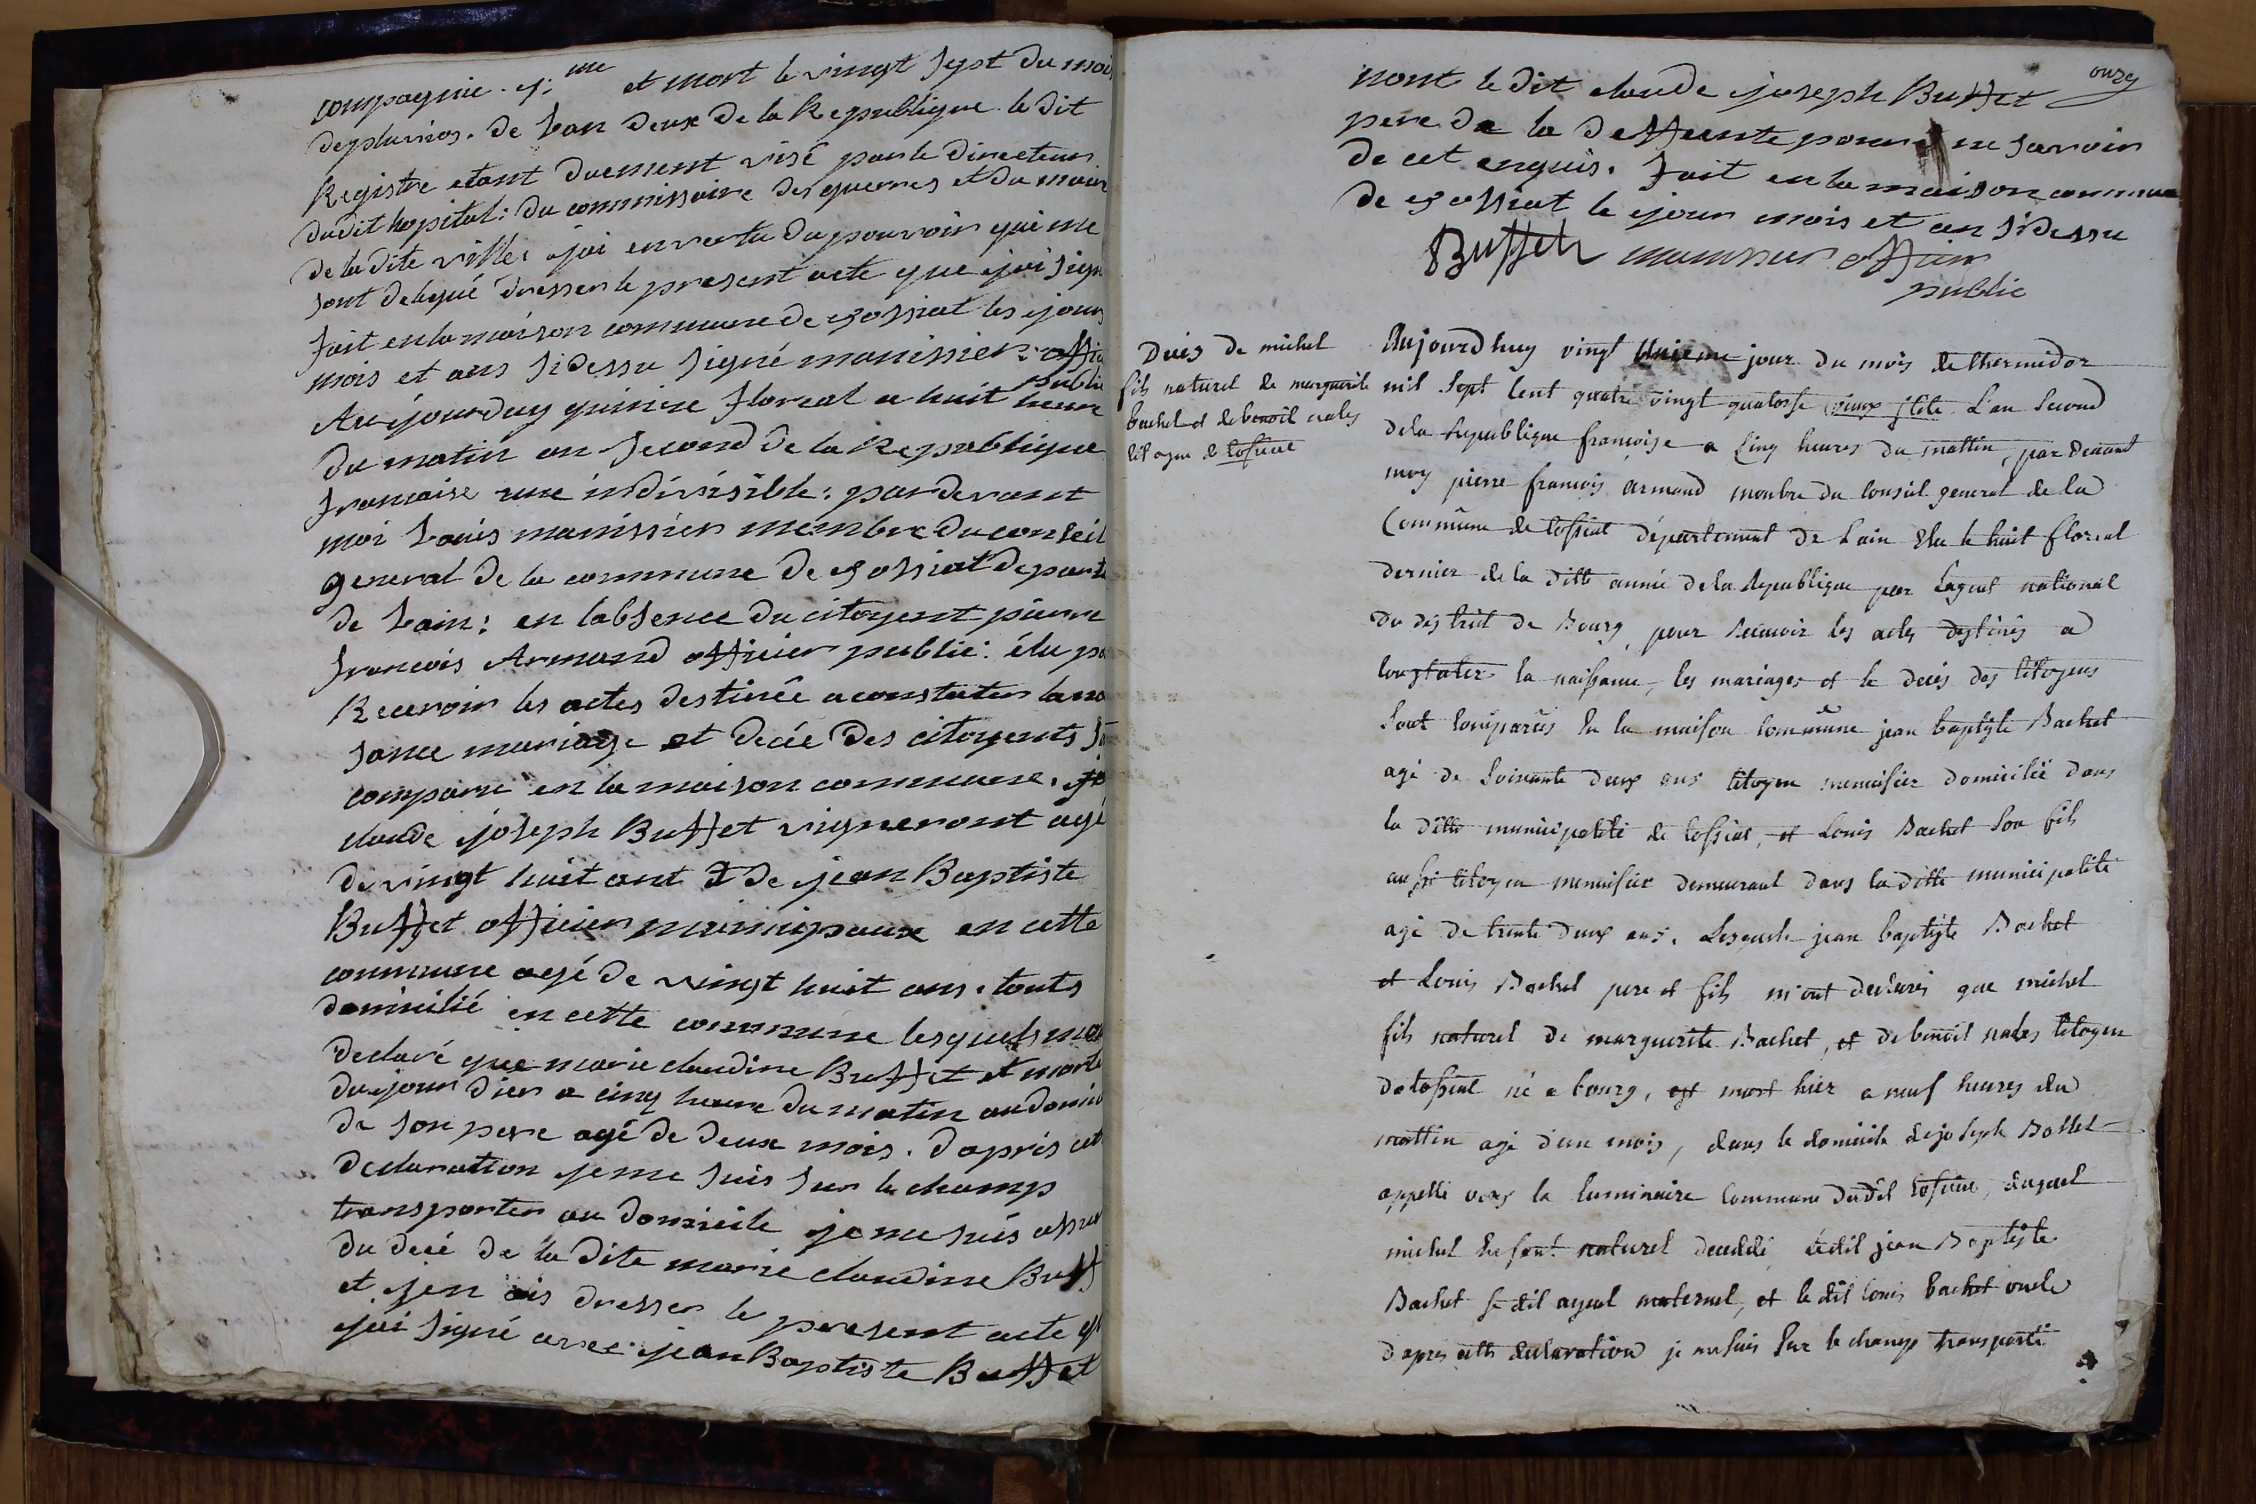 compagnie. 5:me et mort le vingt sept du moi
de pluvios. de lan deux de la Republique. le dit
Registre etant duement visé par le directeur
dudit hopital: du commissaire des guerres et du maire
de la dite ville: jai en vertu du pouvoir qui me
sont delegué dresser le present acte que jai sign
fait en la maison commune de cossiat les jour
mois et ans si dessu signé manissier: offic
public
Au jourduy quinze floreal a huit heure
du matin an second de la Republique
francaise une indivisible: par devant
moi Louis manissier membre du conseil
general de la commune de cossiat departe
de Lain: en labsence du citoyent pierre
francois Armand officier public: élu po
Recevoir les actes destinée a constater la na
sance mariage et decée des citoyents
comparu en la maison commune.
claude joseph Buffet vigneront agé
de vingt huit ant & de jean Baptiste
Buffet officier municipaux en cette
commune agé de vingt huit ans. touts
domicilié en cette commune lesquels mon
declaré que marie claudine Buffet et morte
du jour dier a cinq heure du matin au domic
de son pere agé de deux mois. dapris cet
declaration je me suis sur le champ
transporter au domicile je me suis assur
du decé de la dite marie claudine Buff
et jen ais dresser le present acte q
jai signé avec jean Baptiste Buffet
onze
nont le dit claude joseph Buffet
pere de la deffunte pour ne savoir
de cet enquis. fait en la maison commune
de cossiat le jour mois et an si dessu
Buffet manissier officier
public
Decès de michel
fils naturel de marguerite
bachet et de benoit nales
citoyen de cossiat
Aujourdhuy vingt unieme jour du mois de thermidor
mil sept cent quatre vingt quatorse vieux stile. L'an second
de la Republique françoise a cinq heures du mattin, par devant
moy pierre françois armand membre du conseil general de la
Commune de cossiat département de Lain elu le huit floreal
dernier de la ditte année de la Republique par lagent national
du district de Bourg, pour Recevoir les actes destinés a
constater la naissance, les mariages et le decès des citoyens
sont comparûs en la maison commune jean baptiste Bachet
agé de soixante deux ans citoyen menuisier domicilié dans
la ditte municipalité de cossiat, et Louis Bachet son fils
aussi citoyen menuisier demeurant dans la ditte municipalité
agé de trente deux ans. Lesquels jean baptiste Bachet
et Louis Bachet pere et fils m'ont declarés que michel
fils naturel de marguerite Bachet, et de benoit nales citoyen
de cossiat né a bourg, est mort hier a neuf heures du
mattin agé d'un mois, dans le domicile de joseph Bollet
appellé vers la luminaire commune dudit cossiat, duquel
michel enfant naturel decedé, ledit jean Baptiste
Bachet se dit ayeul maternel, et le dit louis bachet oncle
dapres cette declaration je me suis sur le champ transporté